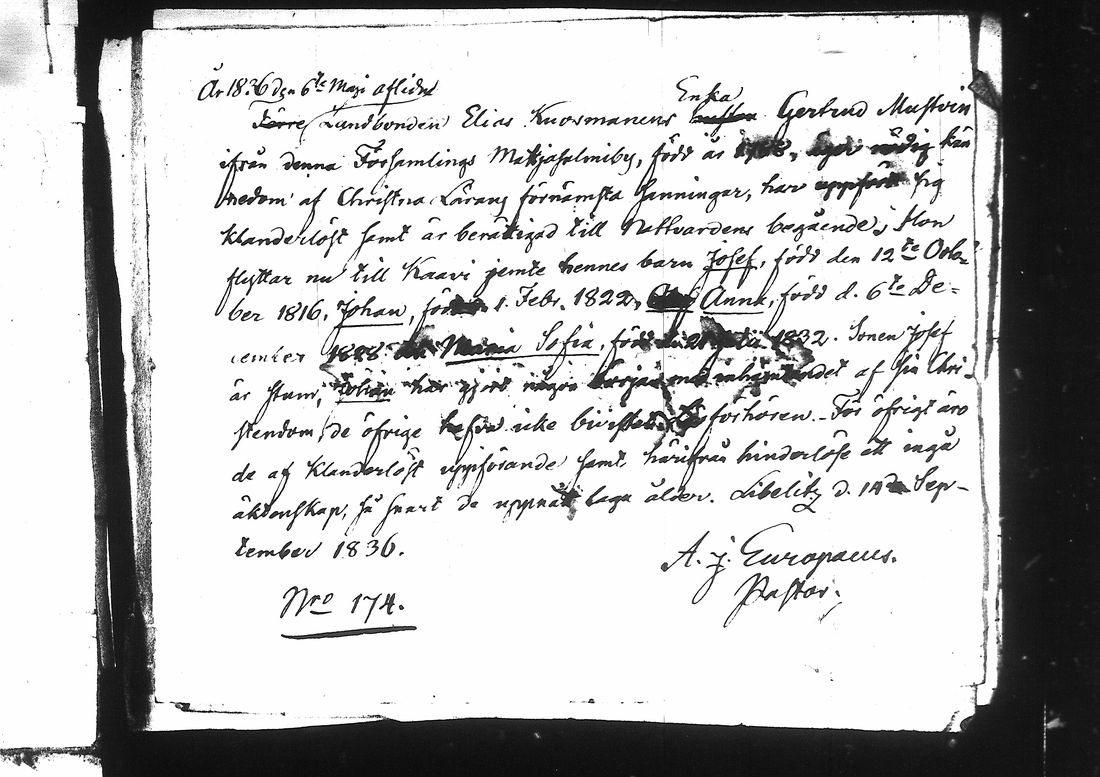 År 1836 den 6te Maji aflidne
Förre Landbonden Elias Kuosmanens Enka Gertrud Mustvin
ifrån denna Församlings Mattjasalmiby, född år 1788, äger nödig kän
nedom af Christna Lärans förnämsta sanningar, har uppfört sig
klanderlöst samt är berättigad till Nattvardens begående; Hon
flyttar nu till Kaavi jemte hennes barn Josef, född den 12te Octo=
ber 1816, Johan, född d. 1 Febr. 1822, Anna, född d. 6te De=
cember 1828 Maria Sofia, född 1832. Sonen Josef
är stum, Johan har gjort någon början med inhämtandet af sin Chri-
stendom, de öfrige hafva icke bivistat Läsforhören. För öfrigt äro
de af klanderlöst uppförande samt härifrån hinderlöse att ingå
äktenskap, så snart de uppnått laga ålder. Libelitz d. 14de Sep-
tember 1836.
A. J. Europaeus.
Pastor.
Nro 174.